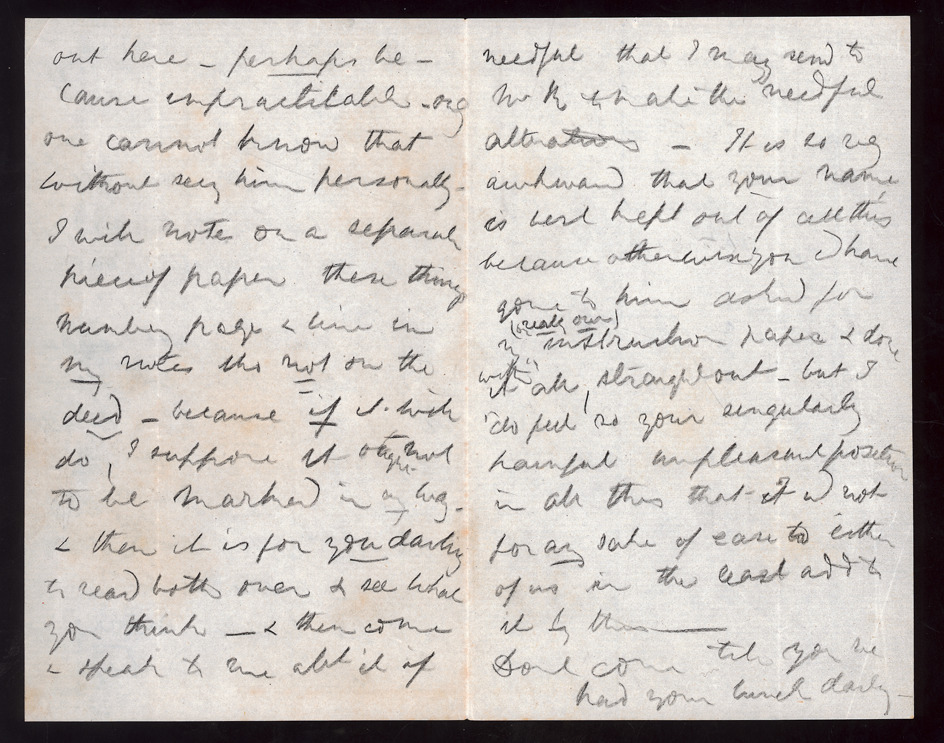 out here – perhaps be –
cause impracticable –
one cannot know that
without seeg him personally –
I will note on a separate
piece of paper these things
number page & line in
my notes tho not on the
deed – because if it will
do, I suppose it ought not
to be marked in any way –
& then it is for you darling
to read both over & see what
you think – & then come
& speak to me abt it if
needful that I may send to
Mr R to make the needful
alterations – It is so very
awkward that your name
is best kept out of all this
because otherwise you d have
gone to him asked for
(really own)
my instruction paper & done
with
it all, straight out – but I
do feel so your singularly
painful unpleasant position
in all this that I wd not
for any sake of ease to either
of us in the least add to
it by this
Dont come till you ve
had your lunch darlg –